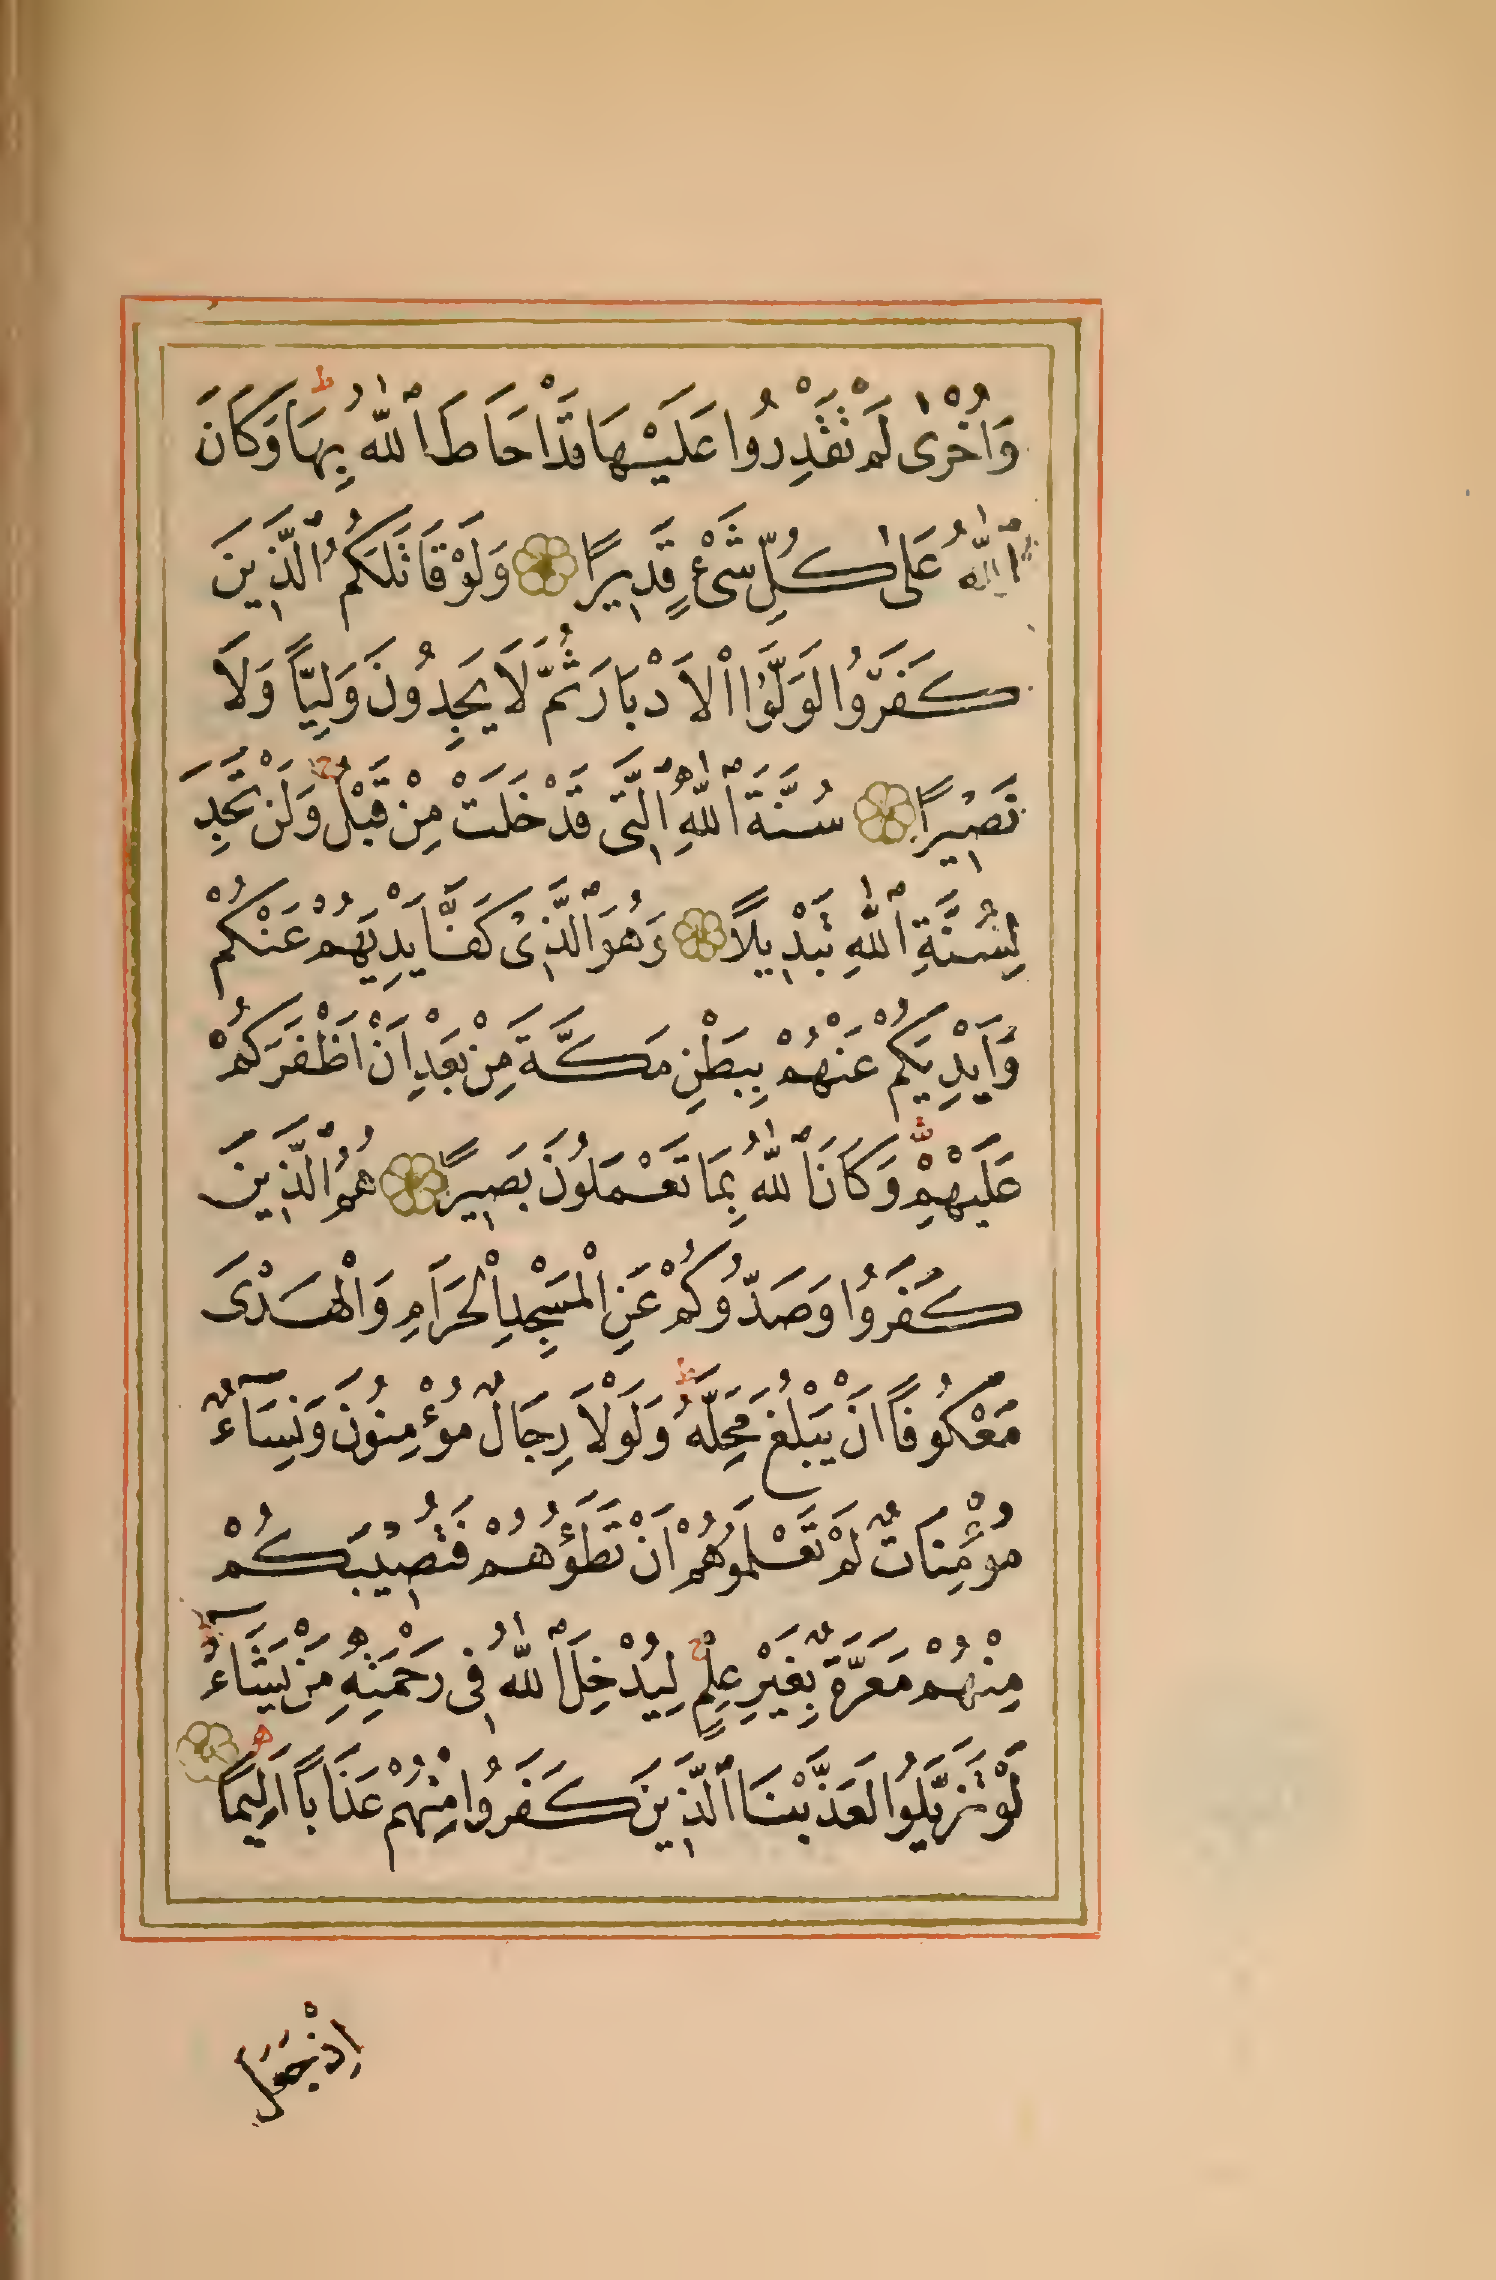 وَاُخْرٰى لَمْ تَقْدِرُوا عَلَيْهَا قَدْ اَحَاطَ اللّٰهُ بِهَا ط وَكَانَ
اللّٰهُ عَلٰى كُلِّ شَىْءٍ قَدِيرًا وَلَوْ قَاتَلَكُمُ الَّذِينَ
كَفَرُوا لَوَلَّوُا الْاَدْبَارَ ثُمَّ لَا يَجِدُونَ وَلِيًّا وَلَا
نَصِيرًا سُنَّةَ اللّٰهِ الَّتِى قَدْ خَلَتْ مِنْ قَبْلُ ج وَلَنْ تَجِدَ
لِسُنَّةِ اللّٰهِ تَبْدِيلًا وَهُوَ الَّذِى كَفَّ اَيْدِيَهُمْ عَنْكُمْ
وَاَيْدِيَكُمْ عَنْهُمْ بِبَطْنِ مَكَّةَ مِنْ بَعْدِ اَنْ اَظْفَرَكُمْ
عَلَيْهِمْ ط وَكَانَ اللّٰهُ بِمَا تَعْمَلُونَ بَصِيرًا هُمُ الَّذِينَ
كَفَرُوا وَصَدُّوكُمْ عَنِ الْمَسْجِدِ الْحَرَامِ وَالْهَدْىَ
مَعْكُوفًا اَنْ يَبْلُغَ مَحِلَّهُ ط وَلَوْلَا رِجَالٌ مُؤْمِنُونَ وَنِسَاءٌ
مُؤْمِنَاتٌ لَمْ تَعْلَمُوهُمْ اَنْ تَطَؤُهُمْ فَتُصِيبَكُمْ
مِنْهُمْ مَعَرَّةٌ بِغَيْرِ عِلْمٍ ج لِيُدْخِلَ اللّٰهُ فِى رَحْمَتِهِ مَنْ يَشَاءُ ج
لَوْ تَزَيَّلُوا لَعَذَّبْنَا الَّذِينَ كَفَرُوا مِنْهُمْ عَذَابًا اَلِيمًا ه
اِذْ جَعَلَ